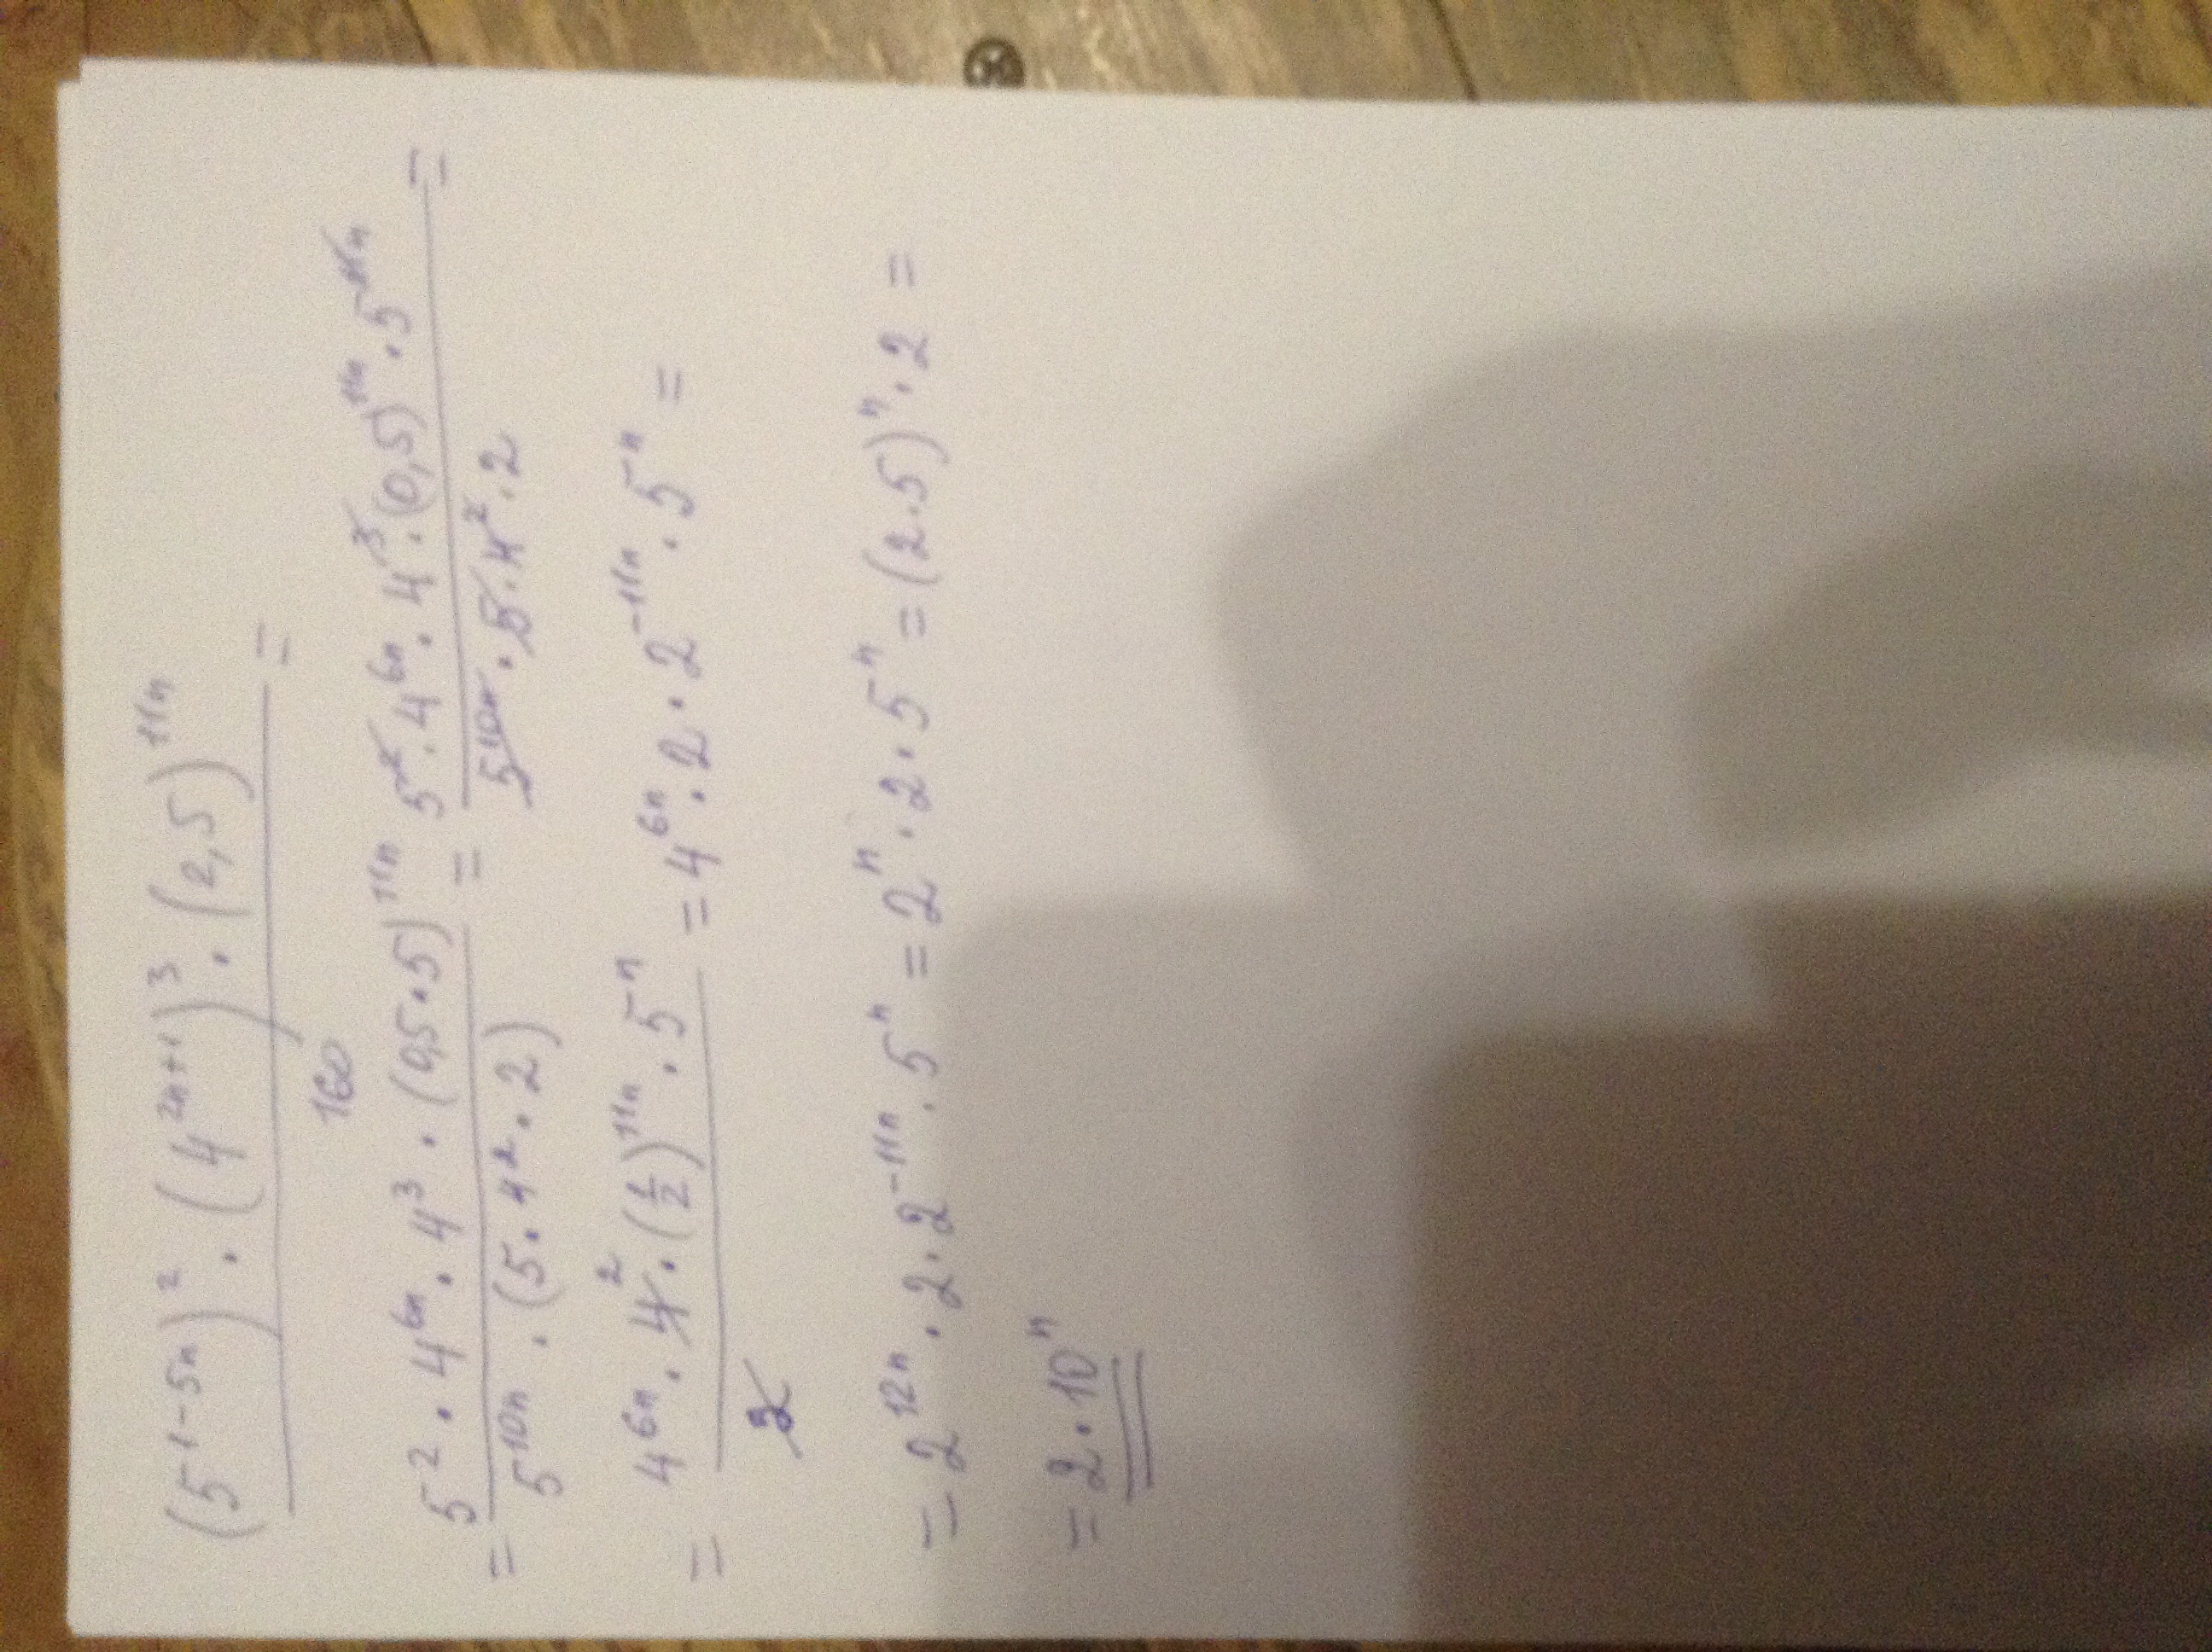 (5^{1-5n})^2 · (4^{2n+1})^3 · (2,5)^{11n} =
160
5^2 · 4^{6n} · 4^3 · (0,5·5)^{11n} = 5^2 · 4^{6n} · 4^3 · (0,5)^{11n} · 5^{11n} =
= 5^{10n} · (5 · 4^2 · 2) 5^{10n} · 5 · 4^2 · 2
= 4^{6n} · 4^2 · (1/2)^{11n} · 5^n = 4^{6n} · 2 · 2^{-11n} · 5^n =
2
= 2^{12n} · 2 · 2^{-11n} · 5^n = 2^n · 2 · 5^n = (2·5)^n · 2 =
= 2 · 10^n